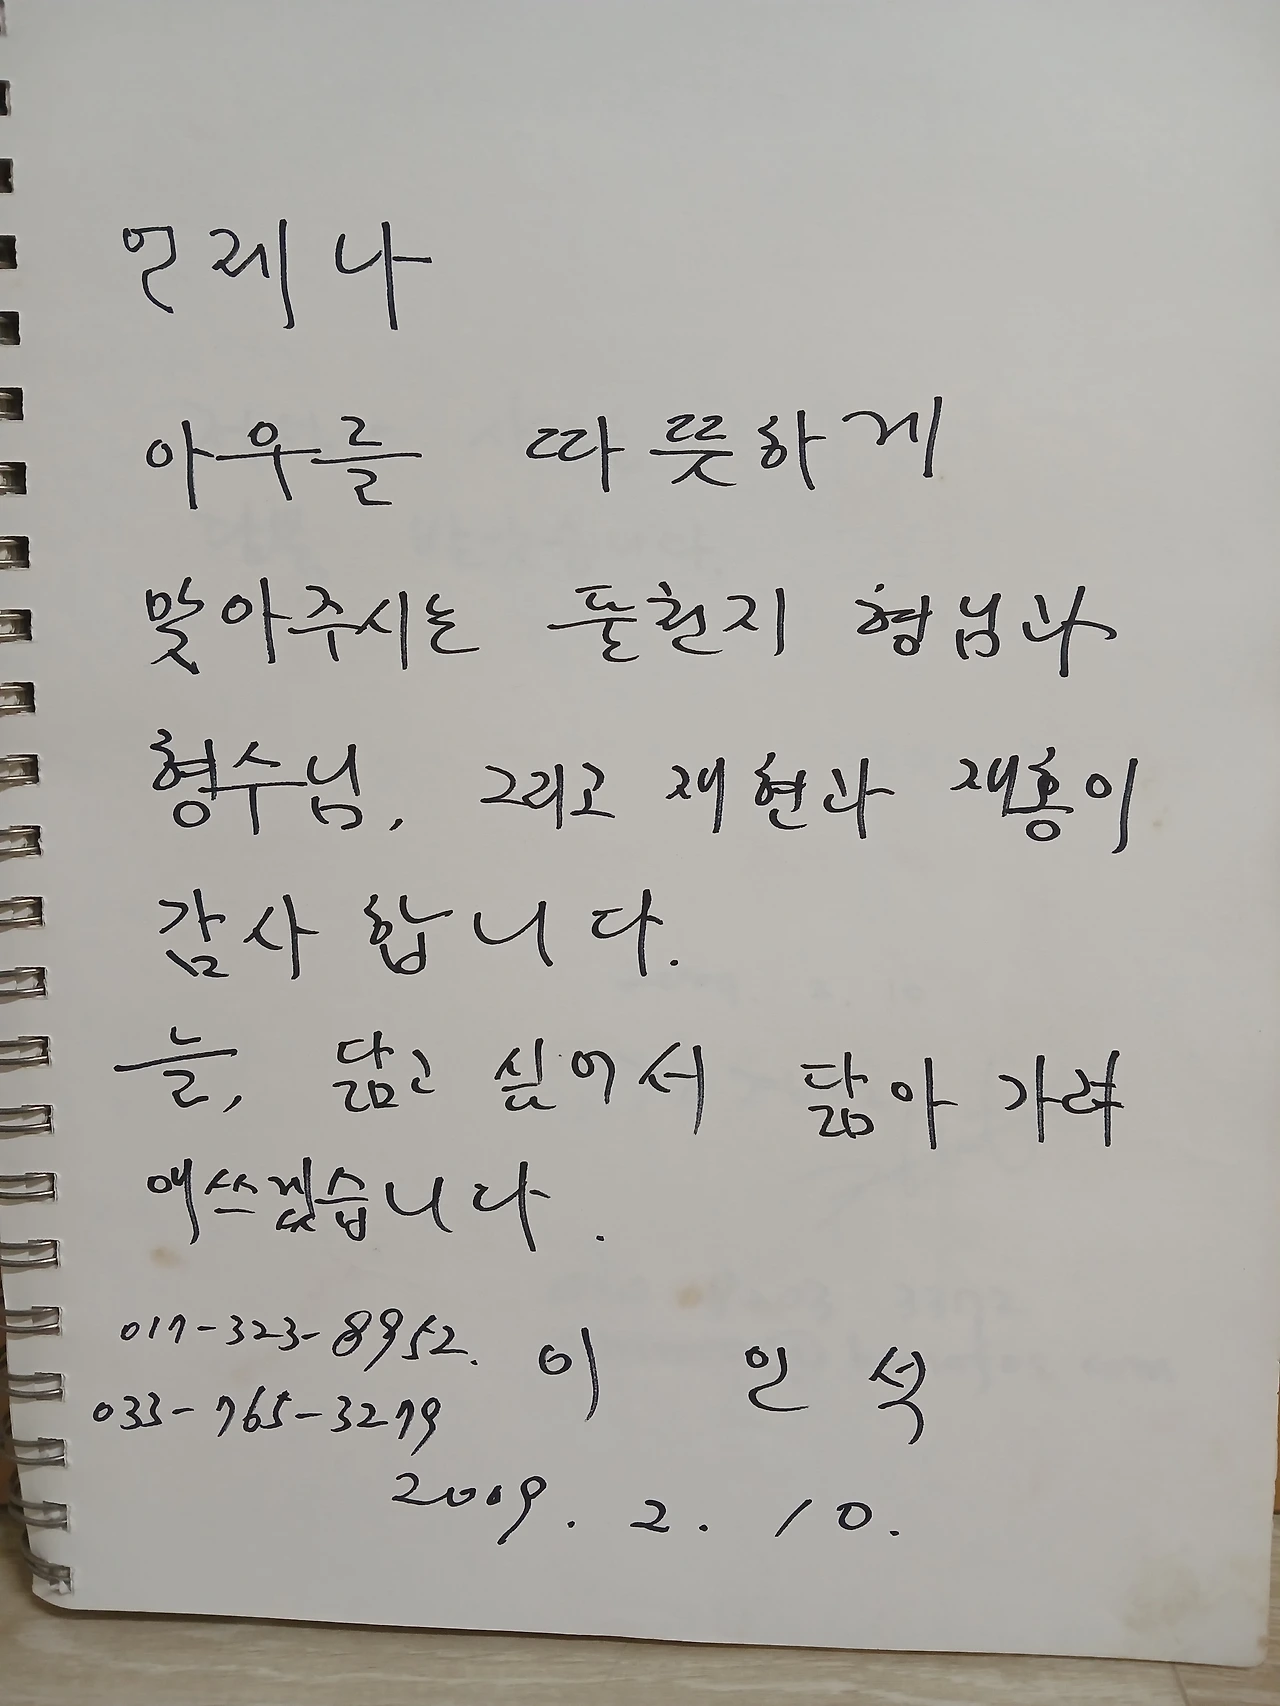 언제나
아우를 따뜻하게
맞아주시는 푼힌지 형님과
형수님, 그리고 재현과 재홍이
감사합니다.
늘, 닮고 싶어서 닮아 가려
애쓰겠습니다.
017-323-8952. 이 인 석
033-765-3279
2009. 2. 10.